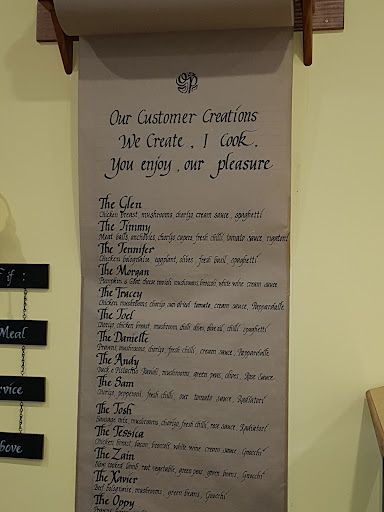 Our Customer Creations
We Create, I Cook.
You enjoy, our pleasure
The Glen
Chicken breast, mushrooms, chorizo, cream sauce, spaghetti
The Jimmy
Meat balls, anchovies, chorizo, capers, fresh chilli, tomato sauce, rigatoni
The Jennifer
Chicken bolognaise, eggplant, olives, fresh basil, spaghetti
The Morgan
Pumpkin & Goat cheese ravioli, mushrooms, broccoli, white wine cream sauce
The Tracey
Chicken, mushrooms, chorizo, sun dried tomato, cream sauce, Pappardelle
The Joel
Chorizo, chicken breast, mushroom, chilli, olives, olive oil, chilli, spaghetti
The Danielle
Prawns, mushrooms, chorizo, fresh chilli, cream sauce, Pappardelle
The Andy
Duck & Pistachio Ravioli, mushrooms, green peas, chives, Rose Sauce
The Sam
Chorizo, pepperoni, fresh chilli, our tomato sauce, Radiatori
The Josh
Sausage mix, mushrooms, chorizo, fresh chilli, rose sauce, Radiatori
The Jessica
Chicken breast, bacon, broccoli, white wine cream sauce, Gnocchi
The Zain
Slow cooked lamb, root vegetable, green peas, green beans, Gnocchi
The Xavier
Beef bolognaise, mushrooms, green beans, Gnocchi
The Oppy
if :
Meal
rvice
bove